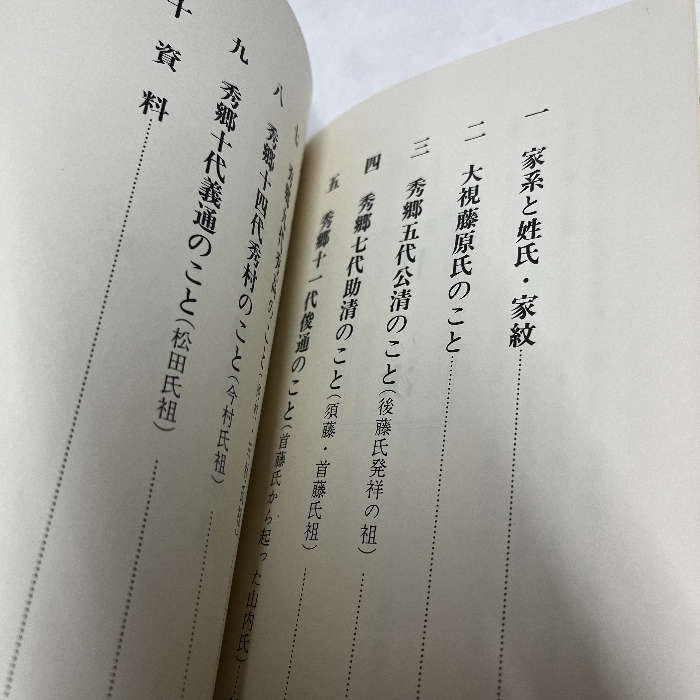 一 家系と姓氏・家紋
二 大視藤原氏のこと
三 秀郷五代公清のこと(後藤氏発祥の祖)
四 秀郷七代助清のこと(須藤・首藤氏祖)
五 秀郷十一代俊通のこと(首藤氏から起った山内氏)
八 秀郷十四代秀村のこと(今村氏祖)
九 秀郷十代義通のこと(松田氏祖)
十 資料